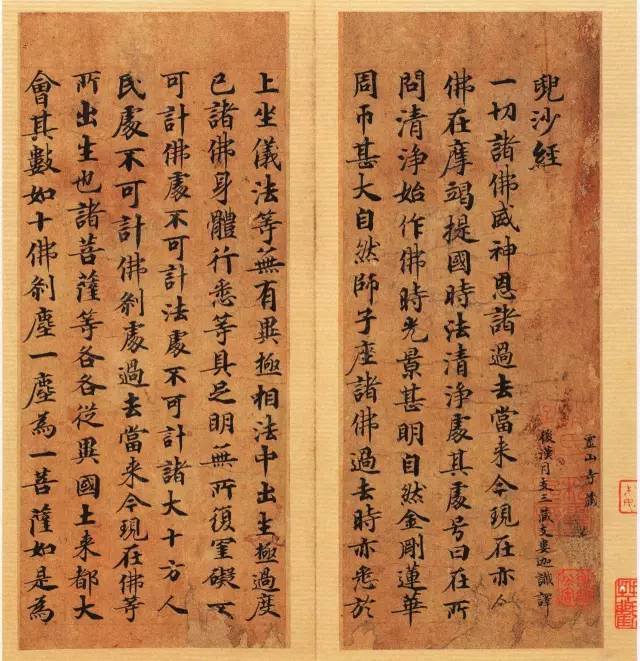 靈山寺藏
兜沙經
後漢月支三藏支婁迦讖譯
一切諸佛威神恩諸過去當来今現在亦尒
佛在摩竭提國時法清浄處其處号曰在所
問清浄始作佛時光景甚明自然金剛蓮華
周帀甚大自然師子座諸佛過去時亦悉於
上坐儀法等無有異極相法中出生極過度
已諸佛身體行悉等具足明無所復罣礙不
可計佛處不可計法處不可計諸大十方人
民處不可計佛剎處過去當来今現在佛等
所出生也諸菩薩等各各從異國土来都大
會其數如十佛剎塵一塵為一菩薩如是為